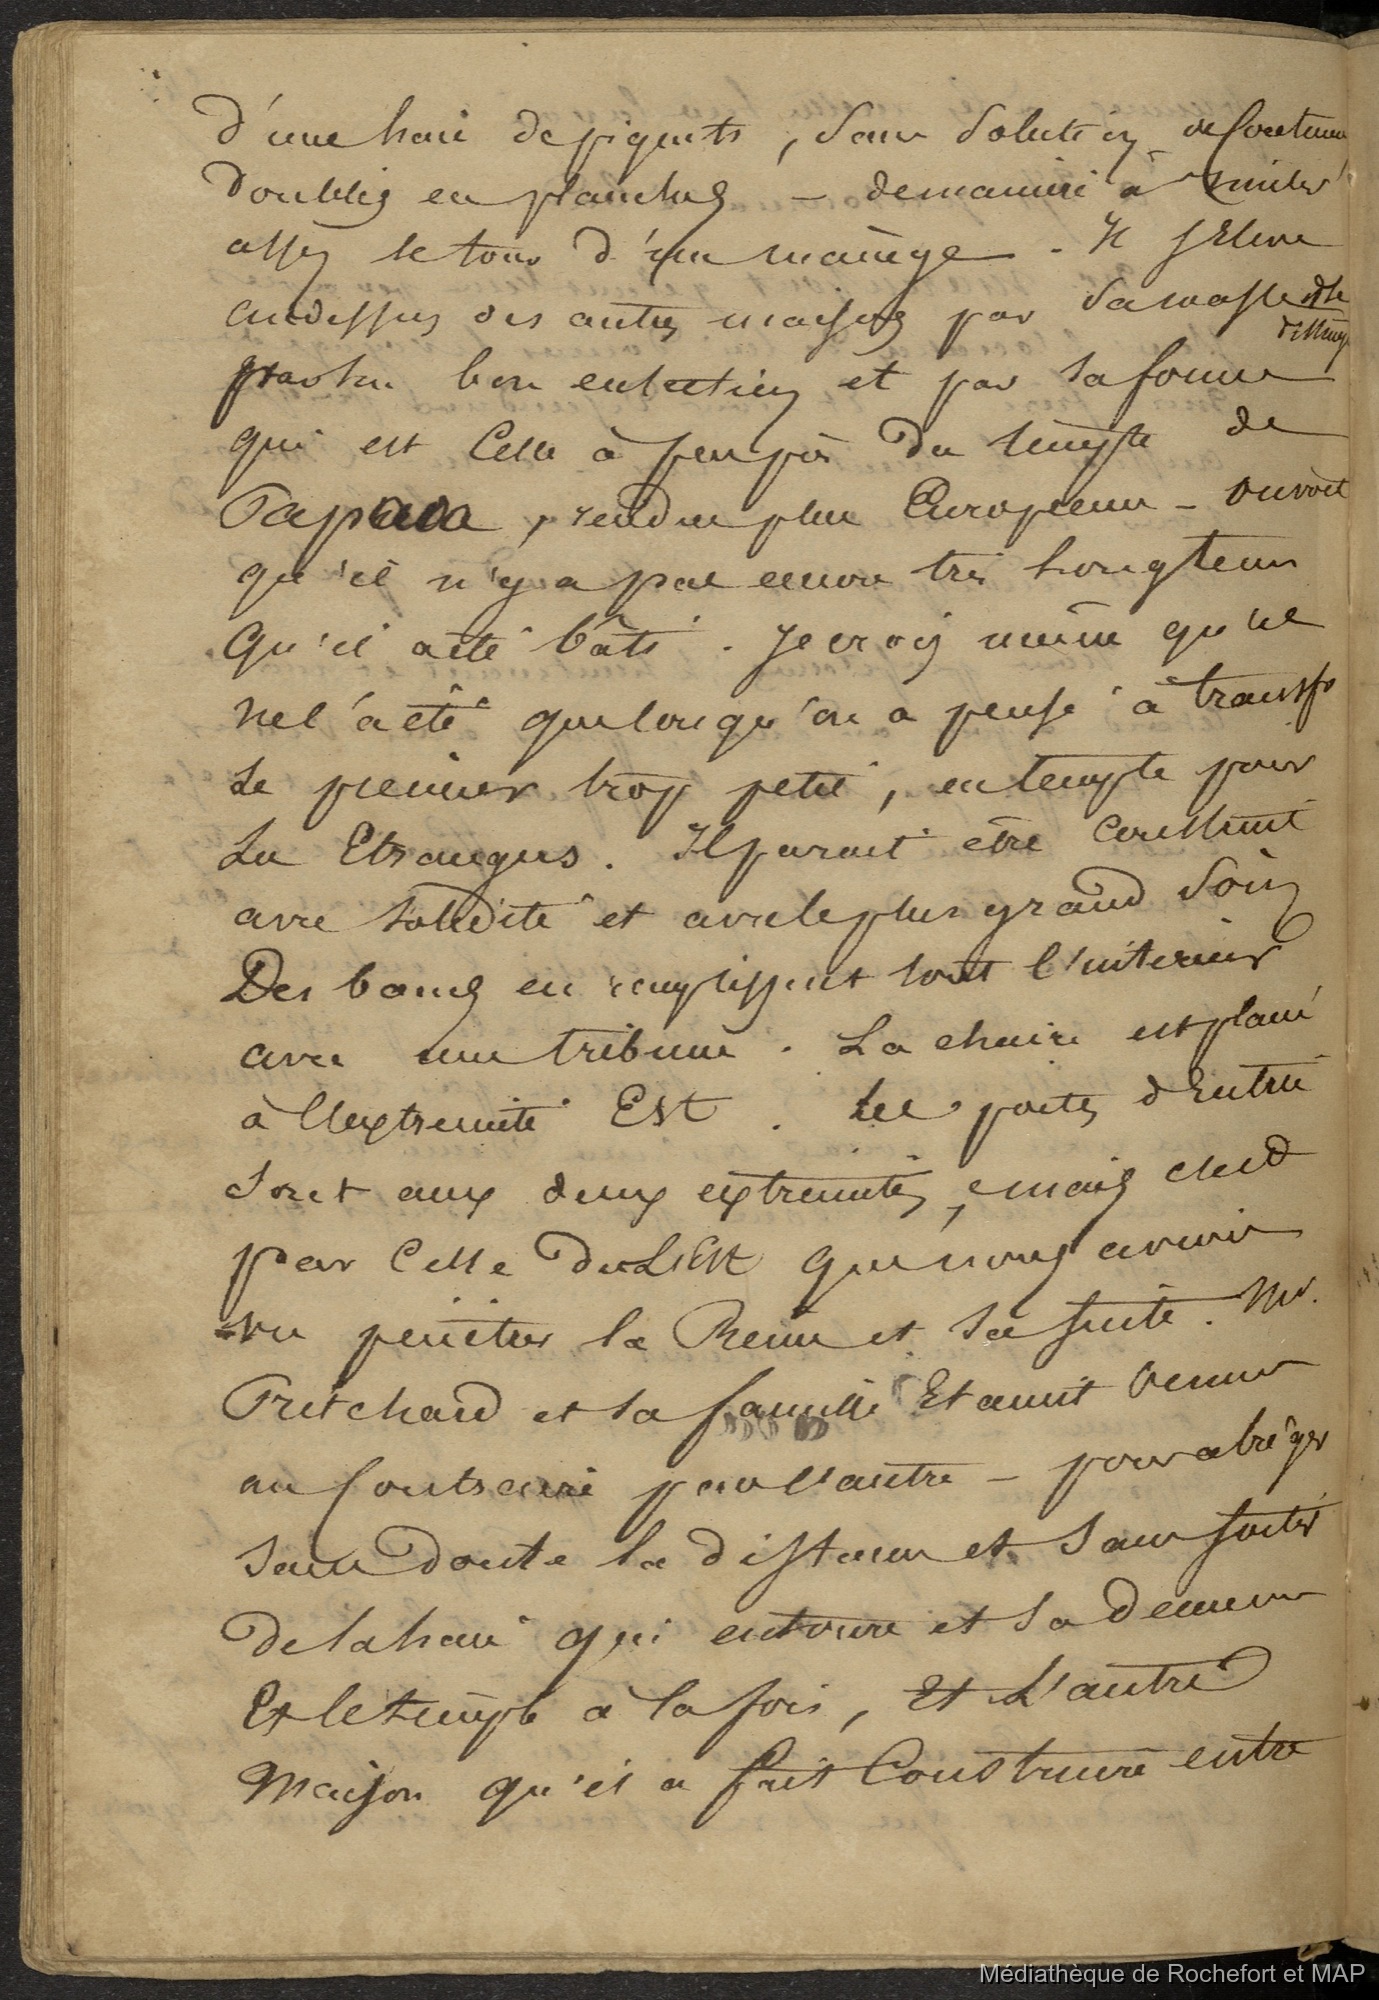 d'une haie de piquets, sans solution de continu
doublés en planches - de manière à imiter
assez le tour d'un manège. Il s'élève
audessus des autres maisons par sa masse et se
distingue
par son bon entretien et par sa forme
qui est celle à peu près du temple de
Papaoa, rendue plus Européenne - on voit
qu'il n'y a pas encore très longtems
qu'il a été bâti. Je crois même qu'il
ne l'a été que lorsqu'on a pensé à transfo
le premier trop petit, en temple pour
les Etrangers. Il parait être construit
avec solidité et avec le plus grand soin
Des bancs en remplissent tout l'intérieur
avec une tribune. La chaire est placée
à l'extremité Est. Les portes d'Entrée
sont aux deux extremités, mais c'est
par celle de L'Est que nous avions
vu pénétrer la Reine et sa suite. Mr.
Pritchard et sa famille Etaient venus
au contraire par l'autre - pour abréger
sans doute la distance et sans sortir
de la haie qui entoure et sa demeure
Et le temple à la fois, Et L'autre
Maison qu'il a fait Construire entre
Médiathèque de Rochefort et MAP